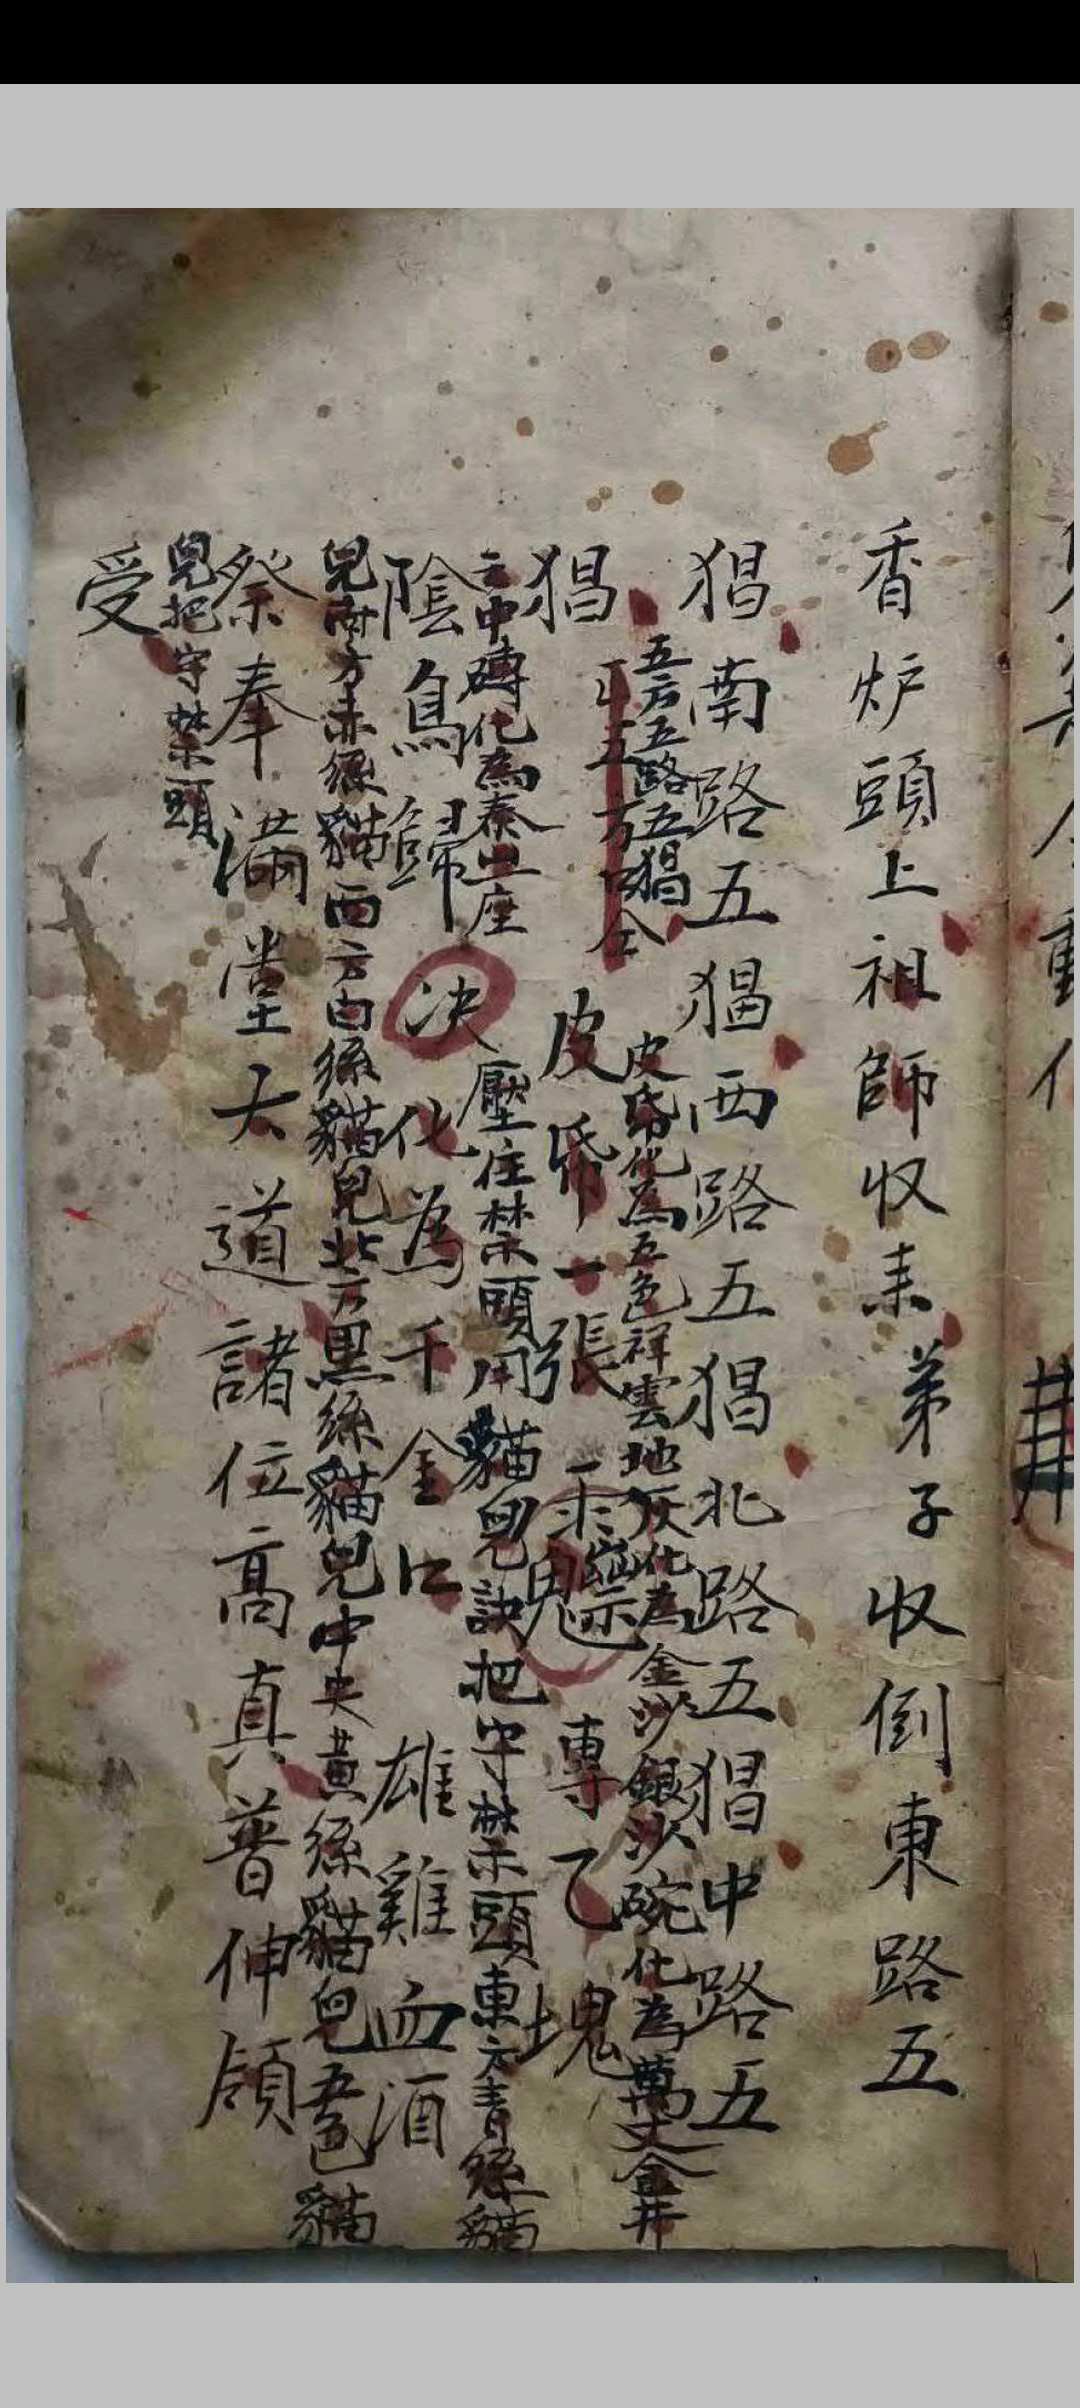 香炉頭上祖師収来弟子収倒東路五
猖南路五猖西路五猖北路五猖中路五
五方五路五猖
皮帋化為五色祥雲地灰化為金沙銀沙碗化為萬丈金井
猖
皮帋一張
專乙塊
云中磚化為泰山座
壓住禁頭用貓兒訣把守禁頭東方青絲貓
陰鳥歸決化為千金口雄雞血酒
兒南方赤絲貓西方白絲貓兒北方黑絲貓兒中央黃絲貓兒五色貓
祭奉滿堂大道諸位高真普伸領
兒把守禁頭
受